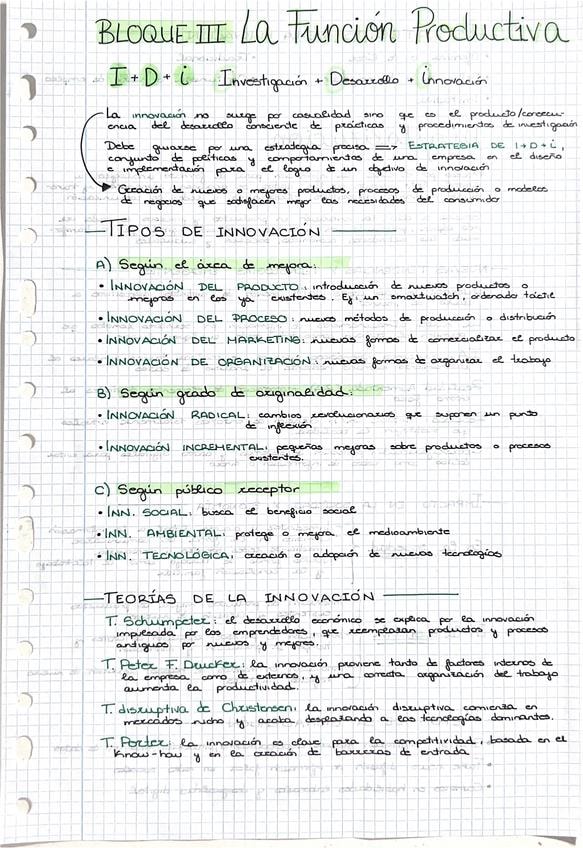 BLOQUE III La Función Productiva
I + D + i Investigación + Desarrollo + innovación
La innovación no surge por casualidad sino que es el producto/consecu-
encia del desarrollo consciente de prácticas y procedimientos de investigación
Debe guiarse por una estrategia precisa => ESTRATEGIA DE I+D+i,
conjunto de políticas y comportamientos de una empresa en el diseño
e implementación para el logro de un objetivo de innovación
Creación de nuevos o mejores productos, procesos de producción o modelos
de negocios que satisfacen mejor las necesidades del consumidor
TIPOS DE INNOVACIÓN
A) Según el área de mejora:
• INNOVACIÓN DEL PRODUCTO: introducción de nuevos productos o
mejoras en los ya existentes. Ej: un smartwatch, ordenado táctil
• INNOVACIÓN DEL PROCESO: nuevos métodos de producción o distribución
• INNOVACIÓN DEL MARKETING: nuevas formas de comercializar el producto
• INNOVACIÓN DE ORGANIZACIÓN: nuevas formas de organizar el trabajo
B) Según grado de originalidad:
• INNOVACIÓN RADICAL: cambios revolucionarios que suponen un punto
de inflexión
• INNOVACIÓN INCREMENTAL: pequeñas mejoras sobre productos o procesos
existentes.
C) Según público receptor
• INN. SOCIAL: busca el beneficio social
• INN. AMBIENTAL: protege o mejora el medioambiente
• INN. TECNOLÓGICA: creación o adopción de nuevas tecnologías
TEORÍAS DE LA INNOVACIÓN
T. Schumpeter: el desarrollo económico se explica por la innovación
impulsada por los emprendedores, que reemplazan productos y procesos
antiguos por nuevos y mejores.
T. Peter F. Drucker: la innovación proviene tanto de factores internos de
la empresa como de externos, y una correcta organización del trabajo
aumenta la productividad.
T. disruptiva de Christensen: la innovación disruptiva comienza en
mercados nicho y acaba desplazando a las tecnologías dominantes.
T. Porter: la innovación es clave para la competitividad, basada en el
Know-how y en la creación de barreras de entrada